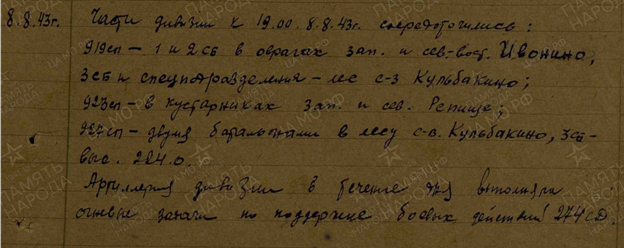 8.8.43г. Части дивизии к 19.00 8.8.43г. сосредоточились:
919сп – 1 и 2сб в оврагах зап. и сев-вост. Ивонино,
3сб и спецподразделения – лес с-з Кульбакино;
923сп – в кустарниках зап. и сев. Репище;
927сп – двумя батальонами в лесу с-в. Кульбакино, 3сб –
выс. 224.0.
Артиллерия дивизии в течение дня выполняла
огневые задачи по поддержке боевых действий 274сд.